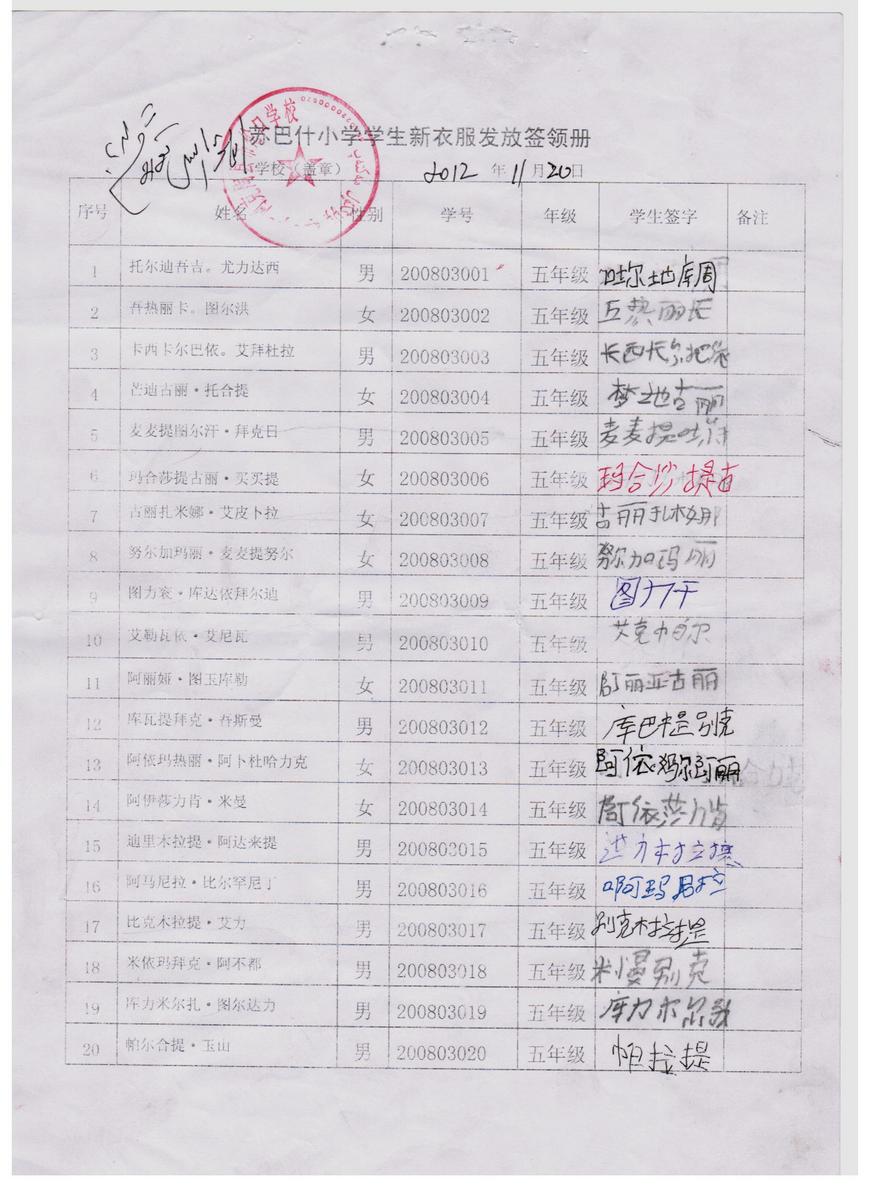 苏巴什小学学生新衣服发放签领册
学校（盖章） 2012 年 11 月 20 日
序号 姓名 性别 学号 年级 学生签字 备注
1 托尔迪吾吉。尤力达西 男 200803001 五年级 吐尔地库周
2 吾热丽卡。图尔洪 女 200803002 五年级
3 卡西卡尔巴依。艾拜杜拉 男 200803003 五年级
4 芒迪古丽·托合提 女 200803004 五年级 梦地古丽
5 麦麦提图尔汗·拜克日 男 200803005 五年级 麦麦提吐
6 玛合莎提古丽·买买提 女 200803006 五年级 玛合沙提古
7 古丽扎米娜·艾皮卜拉 女 200803007 五年级 古丽扎米娜
8 努尔加玛丽·麦麦提努尔 女 200803008 五年级 努尔加玛丽
9 图力衮·库达依拜尔迪 男 200803009 五年级 图力干
10 艾勒瓦依·艾尼瓦 男 200803010 五年级 艾克帕尔
11 阿丽娅·图玉库勒 女 200803011 五年级 阿丽亚古丽
12 库瓦提拜克·吾斯曼 男 200803012 五年级 库巴提别克
13 阿依玛热丽·阿卜杜哈力克 女 200803013 五年级
14 阿伊莎力肯·米曼 女 200803014 五年级 阿依莎力肯
15 迪里木拉提·阿达来提 男 200803015 五年级
16 阿马尼拉·比尔罕尼丁 男 200803016 五年级
17 比克木拉提·艾力 男 200803017 五年级 别克木拉提
18 米依玛拜克·阿不都 男 200803018 五年级 米慢别克
19 库力米尔扎·图尔达力 男 200803019 五年级
20 帕尔合提·玉山 男 200803020 五年级 帕拉提